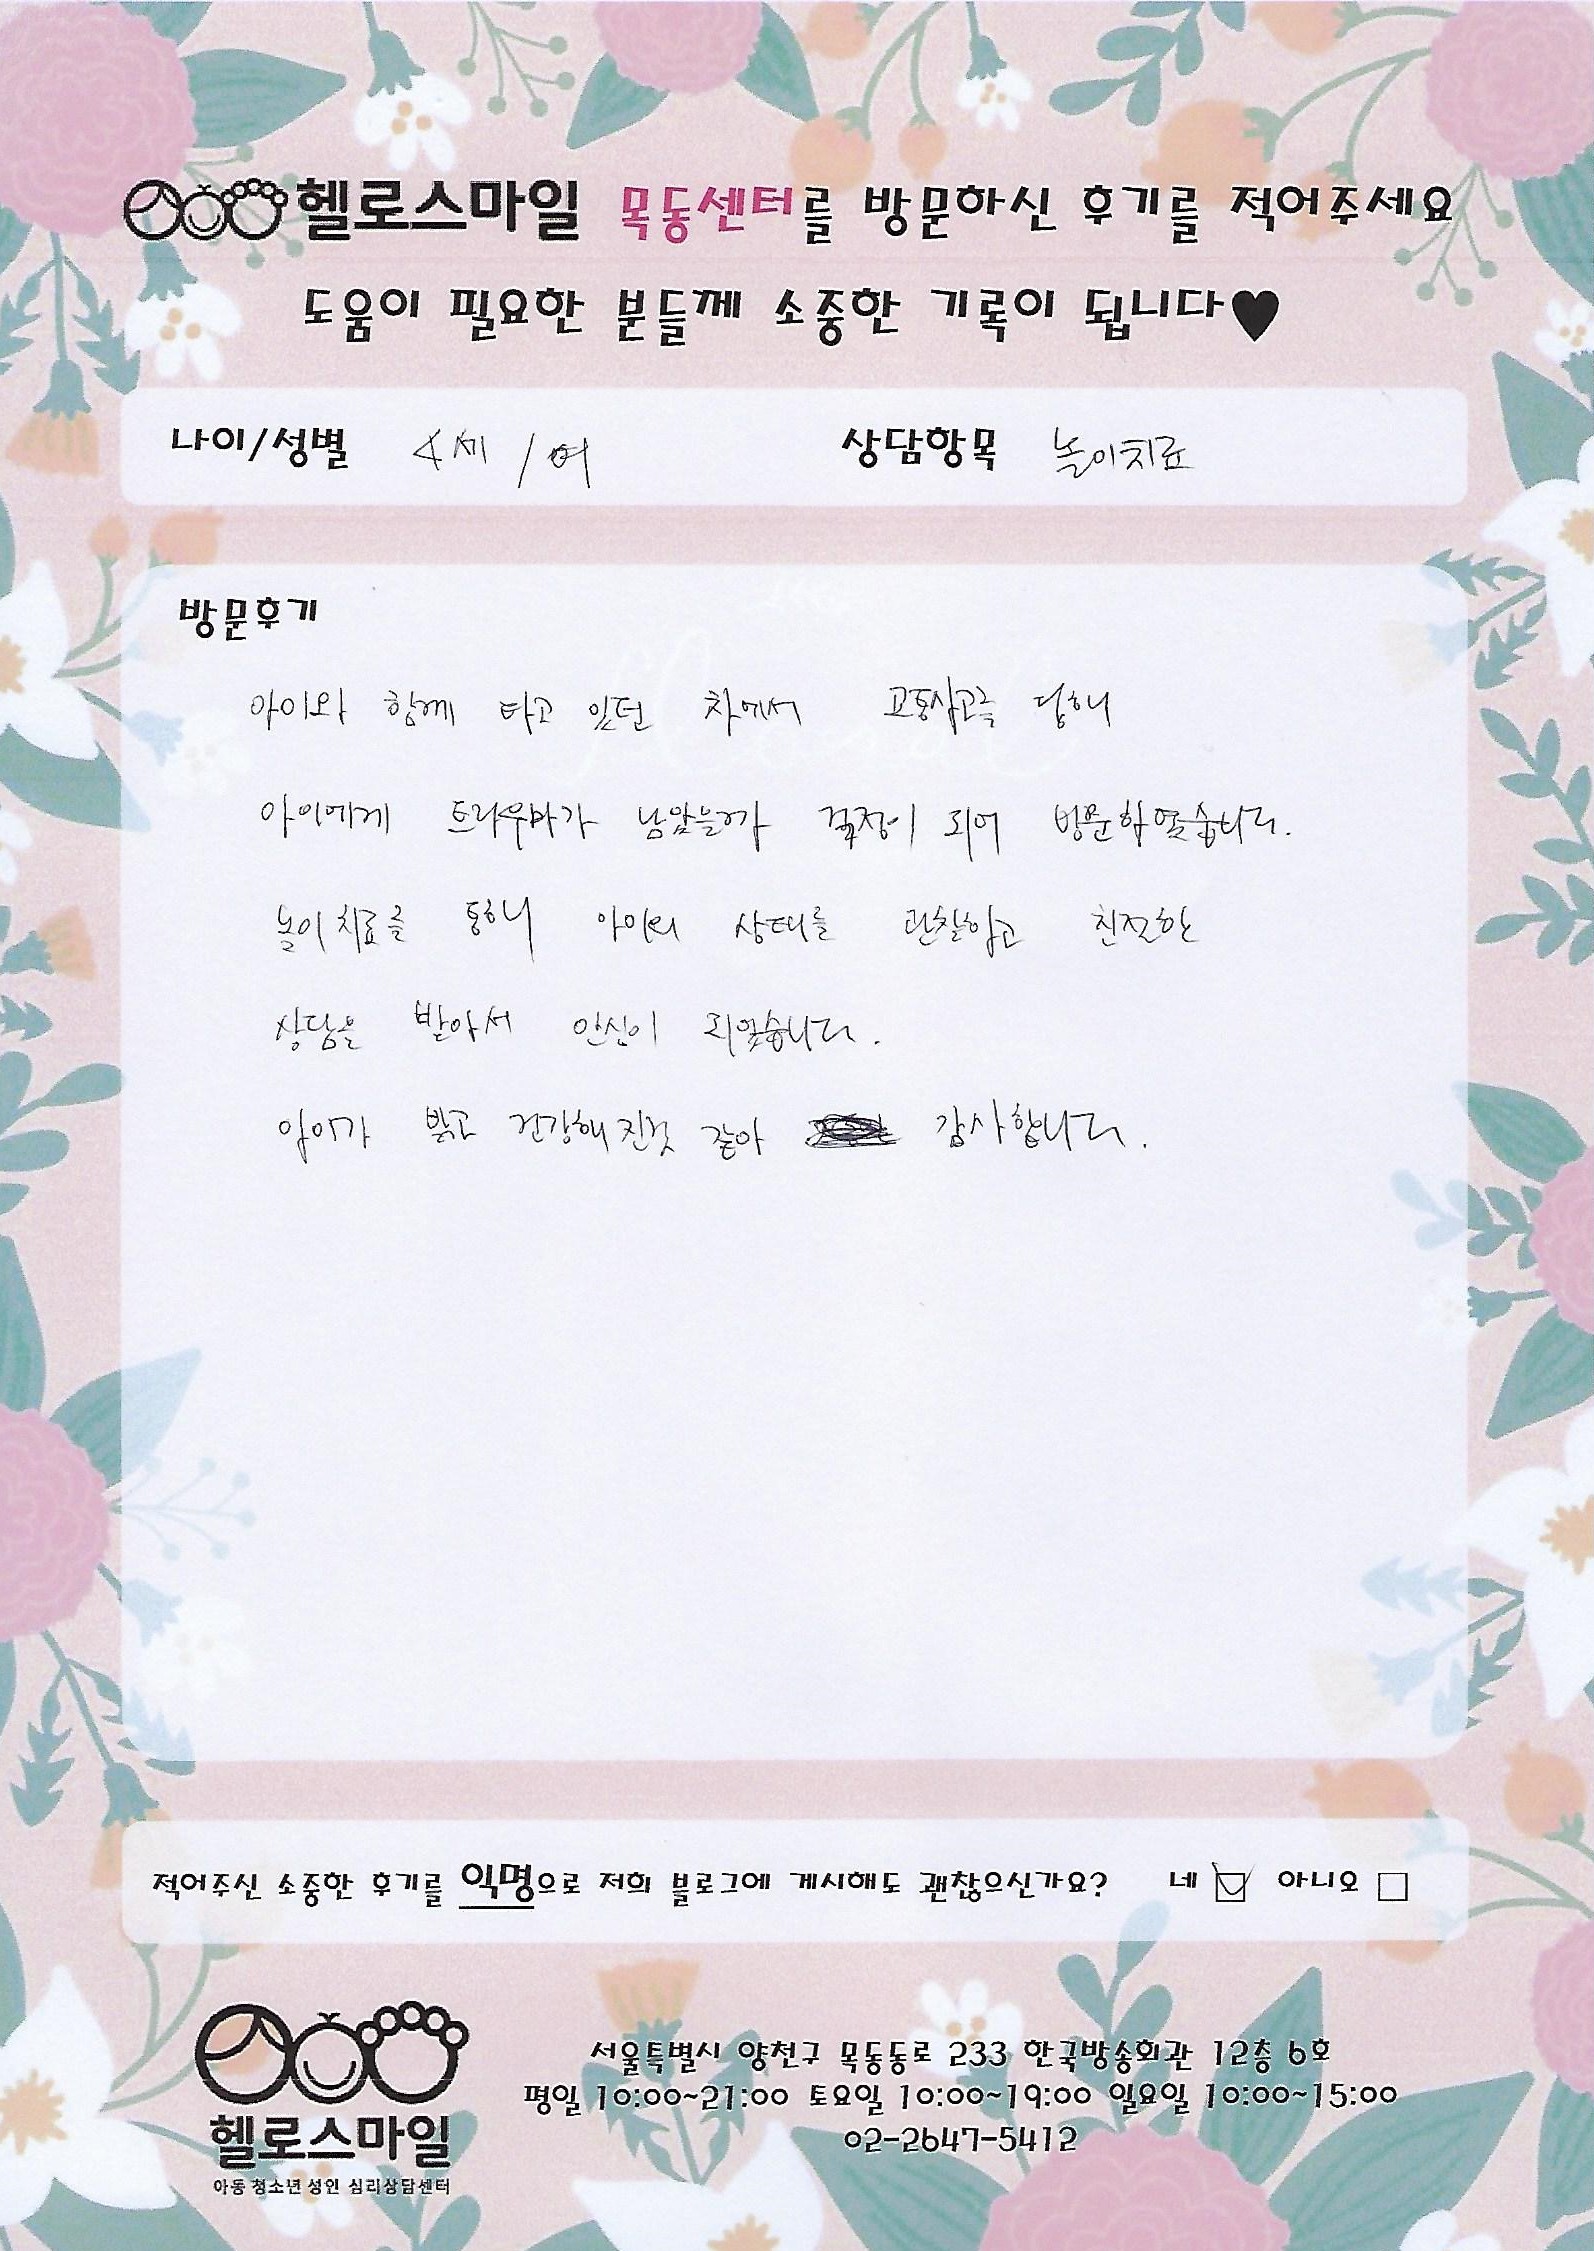 헬로스마일 목동센터를 방문하신 후기를 적어주세요
도움이 필요한 분들께 소중한 기록이 됩니다♥
나이/성별 4세 / 여 상담항목 놀이치료
방문후기
아이와 함께 타고 있던 차에서 교통사고를 당해
아이에게 트라우마가 남았을까 걱정이 되어 방문하였습니다.
놀이치료를 통해 아이의 상태를 관찰하고 친절한
상담을 받아서 안심이 되었습니다.
아이가 밝고 건강해진것 같아 감사합니다.
적어주신 소중한 후기를 익명으로 저희 블로그에 게시해도 괜찮으신가요? 네 아니오
헬로스마일
아동 청소년 성인 심리상담센터
서울특별시 양천구 목동동로 233 한국방송회관 12층 6호
평일 10:00~21:00 토요일 10:00~19:00 일요일 10:00~15:00
02-2647-5412